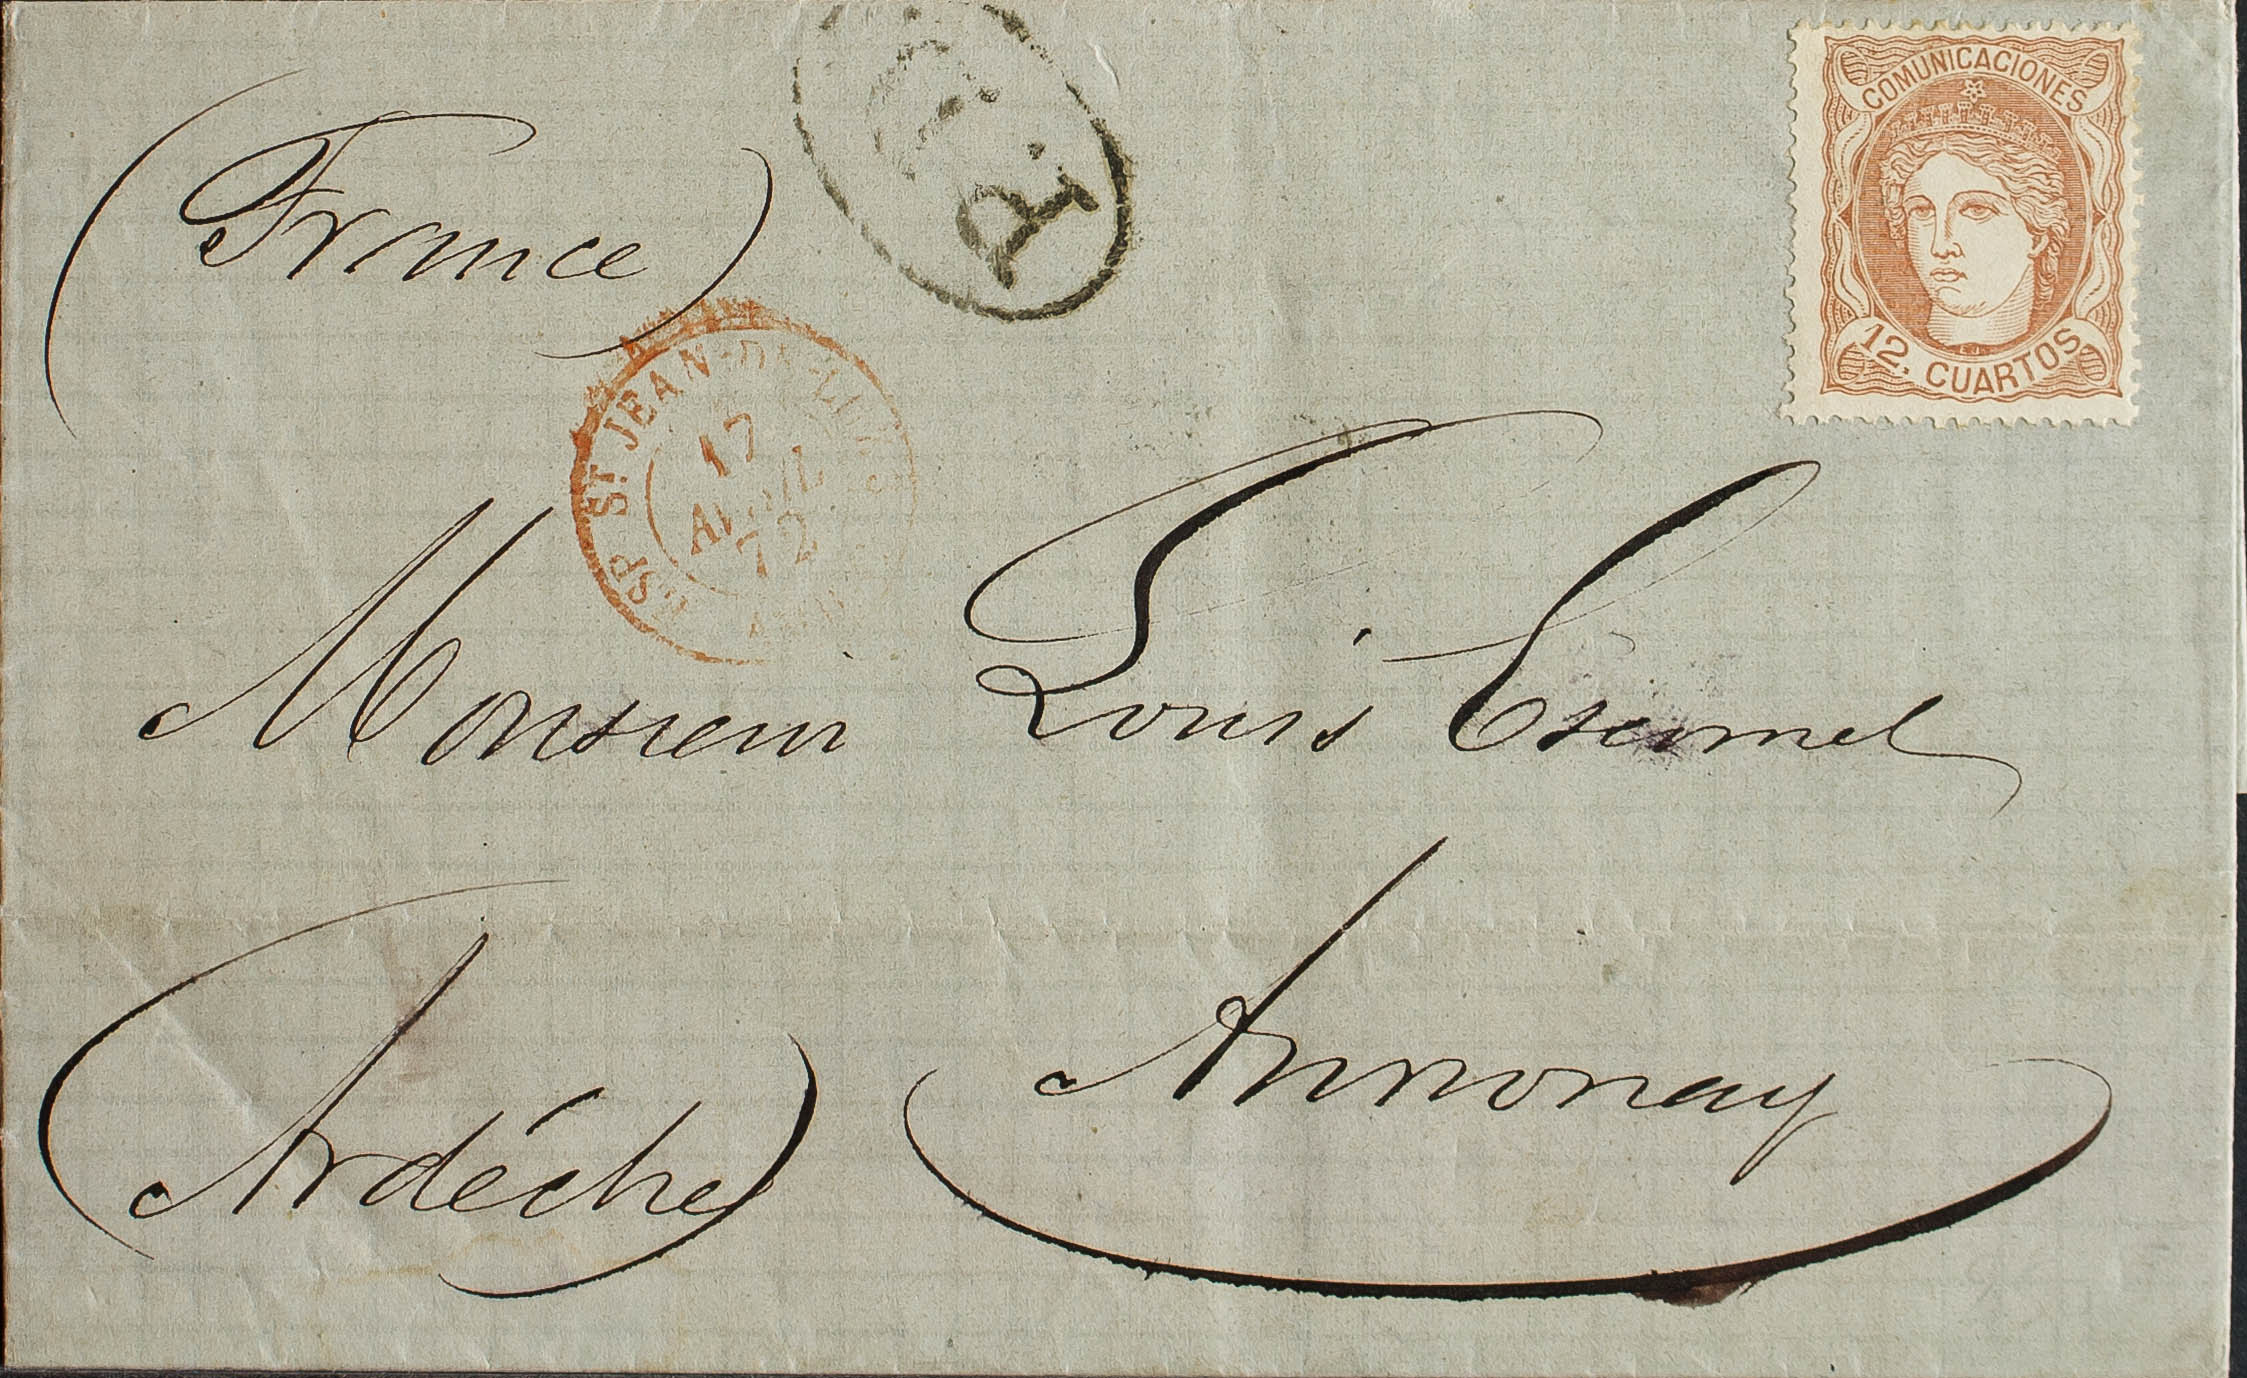 COMUNICACIONES
12, CUARTOS
(France)
P.D.
ESP. ST JEAN-DE-LUZ
17
AVRIL
72
Monsieur Louis Escomel
Annonay
(Ardéche)